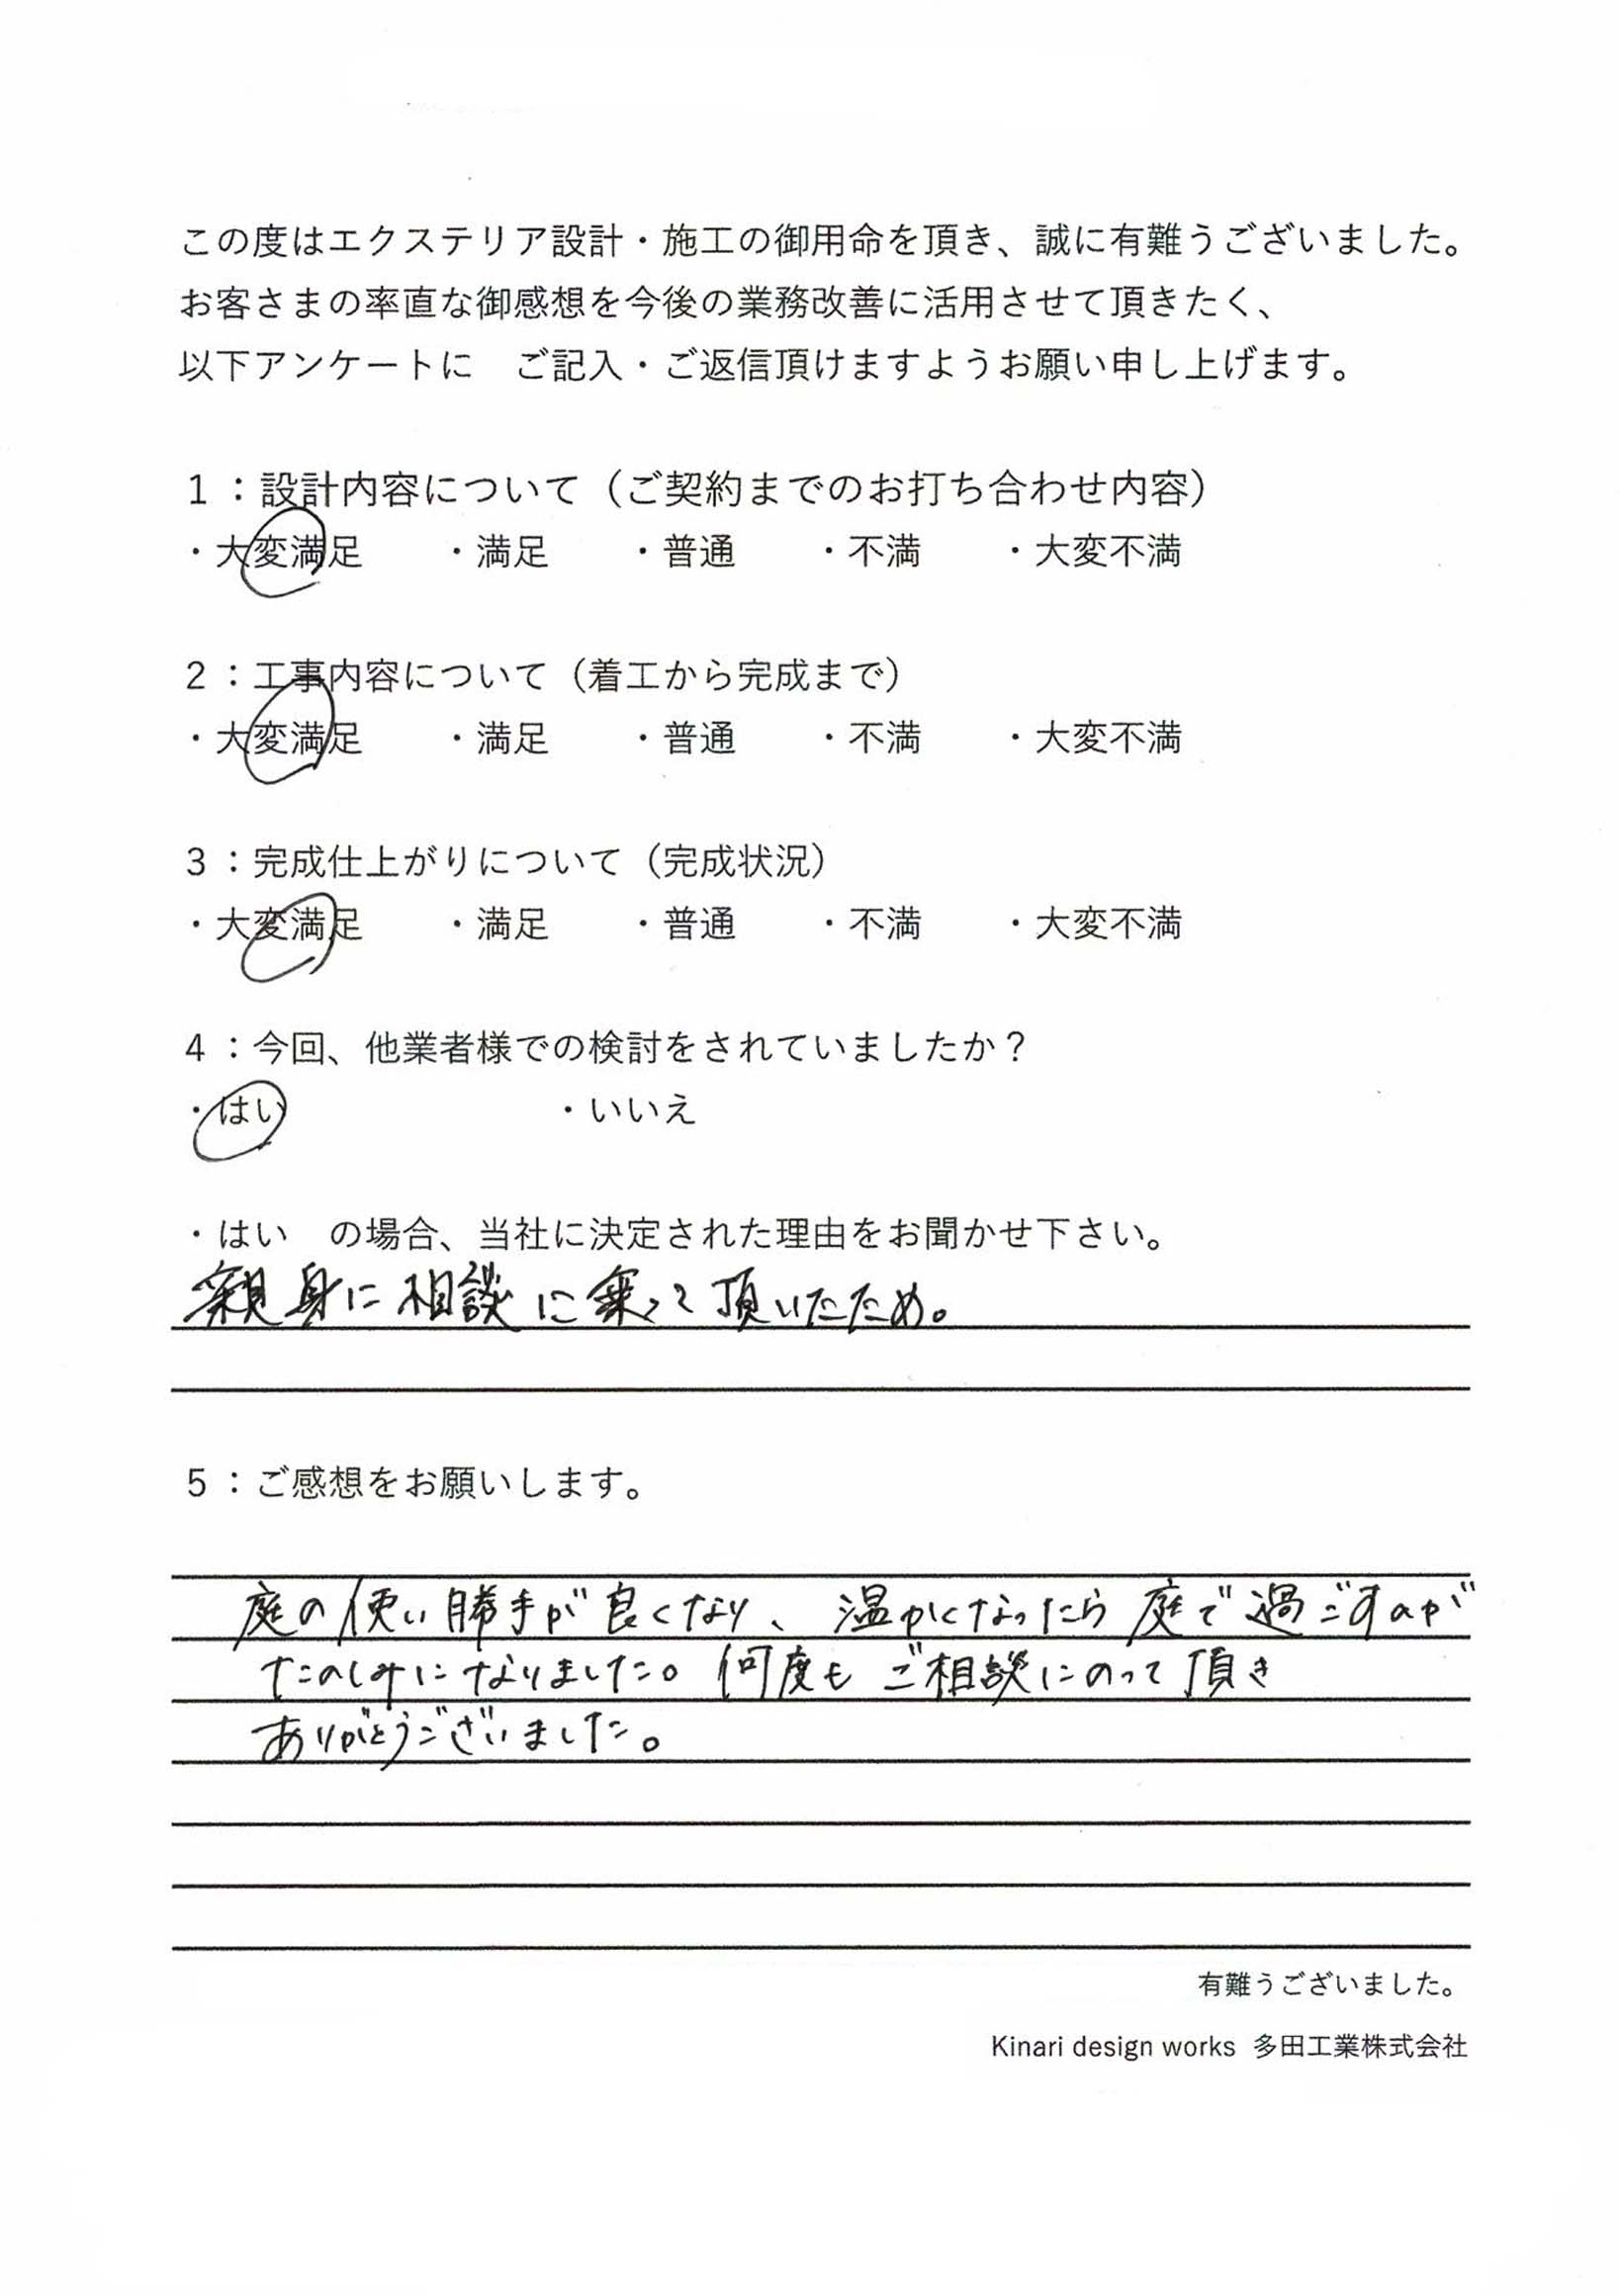 この度はエクステリア設計・施工の御用命を頂き、誠に有難うございました。
お客さまの率直な御感想を今後の業務改善に活用させて頂きたく、
以下アンケートに　ご記入・ご返信頂けますようお願い申し上げます。
1：設計内容について（ご契約までのお打ち合わせ内容）
・大変満足　・満足　・普通　・不満　・大変不満
2：工事内容について（着工から完成まで）
・大変満足　・満足　・普通　・不満　・大変不満
3：完成仕上がりについて（完成状況）
・大変満足　・満足　・普通　・不満　・大変不満
4：今回、他業者様での検討をされていましたか？
・はい　・いいえ
・はい　の場合、当社に決定された理由をお聞かせ下さい。
親身に相談に乗って頂いたため。
5：ご感想をお願いします。
庭の使い勝手が良くなり、温かくなったら庭で過ごすのが
たのしみになりました。何度もご相談にのって頂き
ありがとうございました。
有難うございました。
Kinari design works 多田工業株式会社